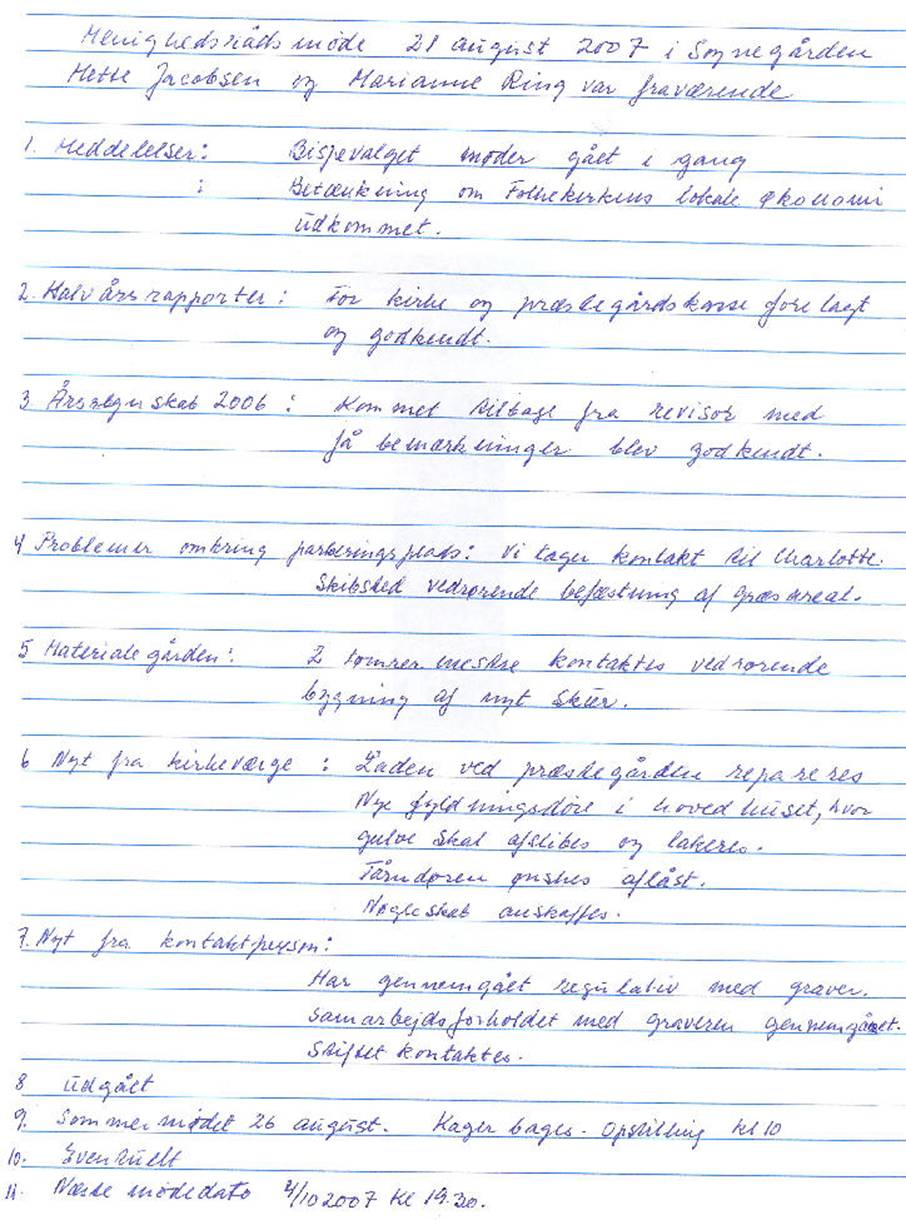 Menighedsråds møde 21 august 2007 i Sognegården
Mette Jacobsen og Marianne Ring var fraværende
1. Meddelelser: Bispevalget møder gået i gang
: Betænkning om Folkekirkens lokale økonomi
udkommet.
2. Halvårsrapporter: For kirke og præstegårdskasse forelagt
og godkendt.
3 Årsregnskab 2006: Kommet tilbage fra revisor med
få bemærkninger blev godkendt.
4 Problemer omkring parkeringsplads: Vi tager kontakt til Charlotte.
Skibsted vedrørende befæstning af græsareal.
5 Materialegården: 2 tømrermestre kontaktes vedrørende
bygning af nyt skur.
6 Nyt fra kirkeværge: Laden ved præstegården repareres
Nye fyldningsdøre i hovedhuset, hvor
gulve skal afslibes og lakeres.
Tårndøren ønskes aflåst.
Nøgleskab anskaffes.
7. Nyt fra kontaktperson:
Har gennemgået regulativ med graver.
Samarbejdsforholdet med graveren gennemgået.
Stiftet kontaktes.
8 Udgået
9. Sommermødet 26 august. Kager bages. Opstilling kl 10
10. Eventuelt
11. Næste mødedato /10 2007 Kl 19.30.